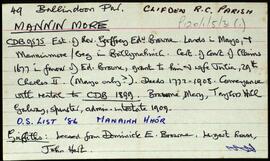 49 Ballindoon Ph. CLIFDEN R.C. PARISH
MANNIN MORE
CDB 9535 Est. of Rev. Geoffrey Edw. Browne Lands in Mayo, &
Mannin more / beg in Ballynahinch. Cert. of Court of Claims
1677 in favour of Ed. Browne, grant to him & wife Julia, 29th
Charles II. (Mayo only?). Deeds 1772-1905. Conveyance
with rental to CDB 1899. Browne Mery, Taylors Hill
Galway, spinster, admin-intestate 1909.
O.S. LIST '86 MANAINN MHÓR
Griffiths: leased from Dominick E. Browne.
John Hart.